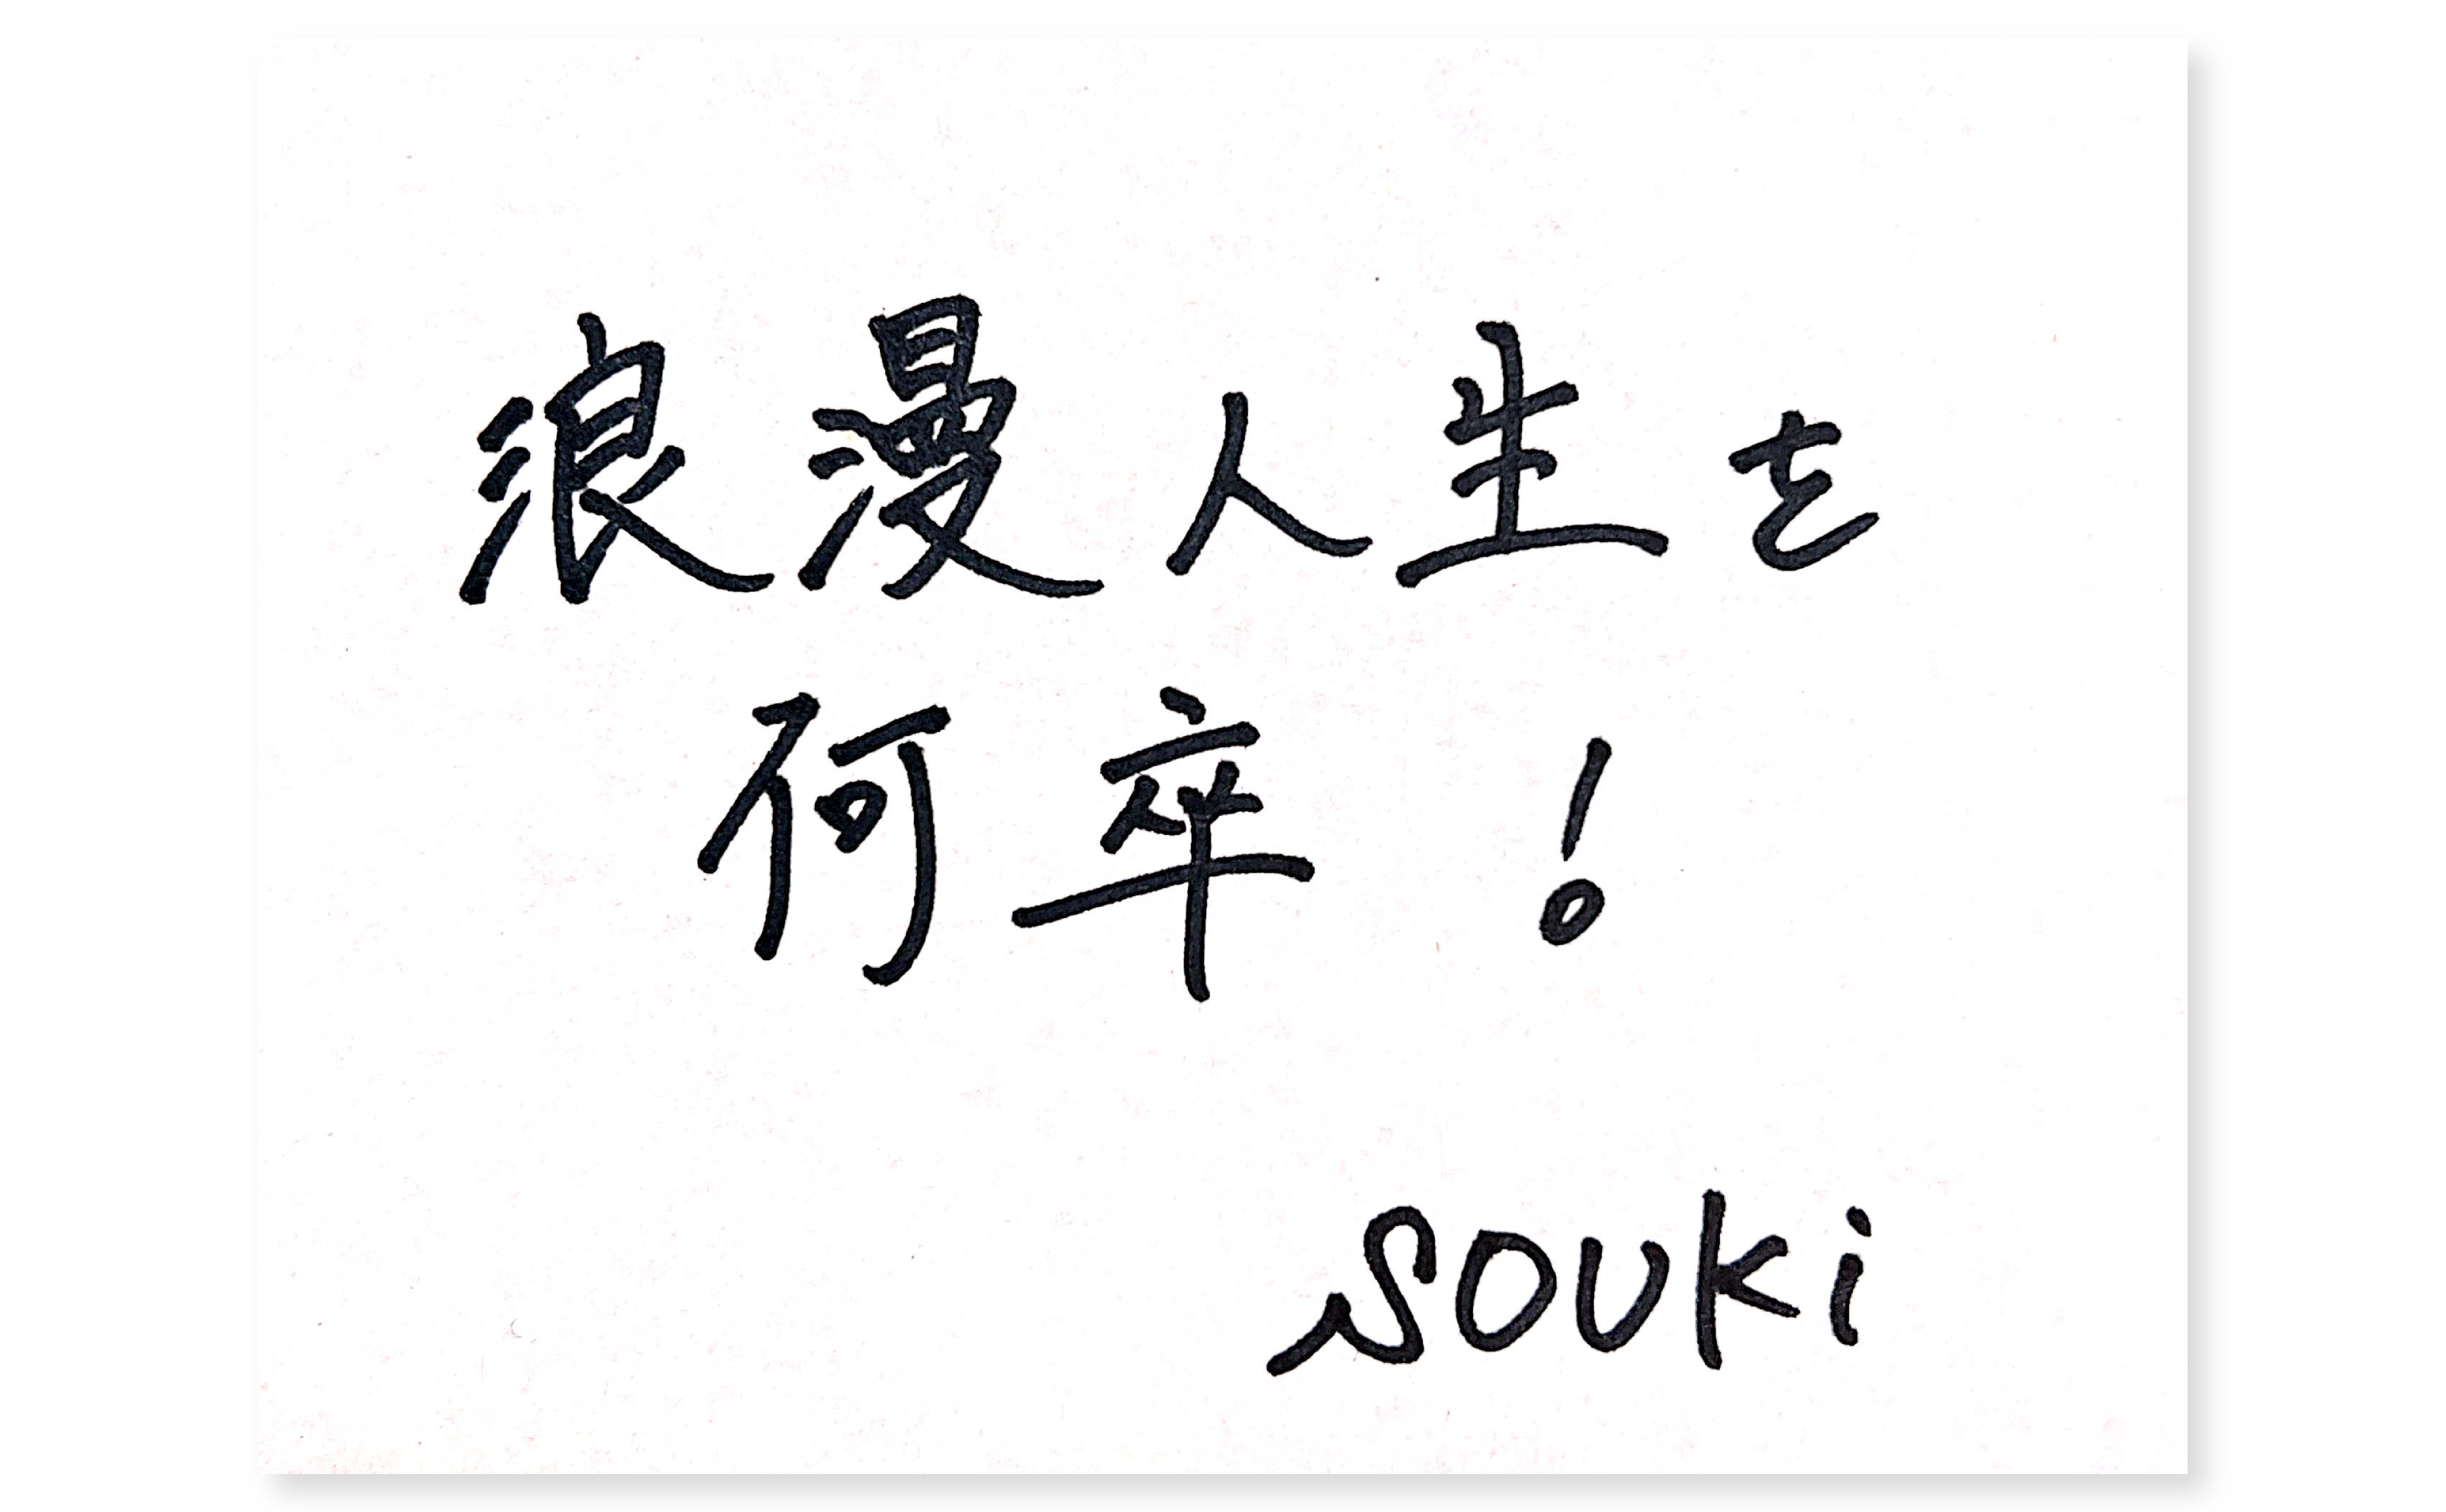 浪漫人生を
何卒！
SOUKi